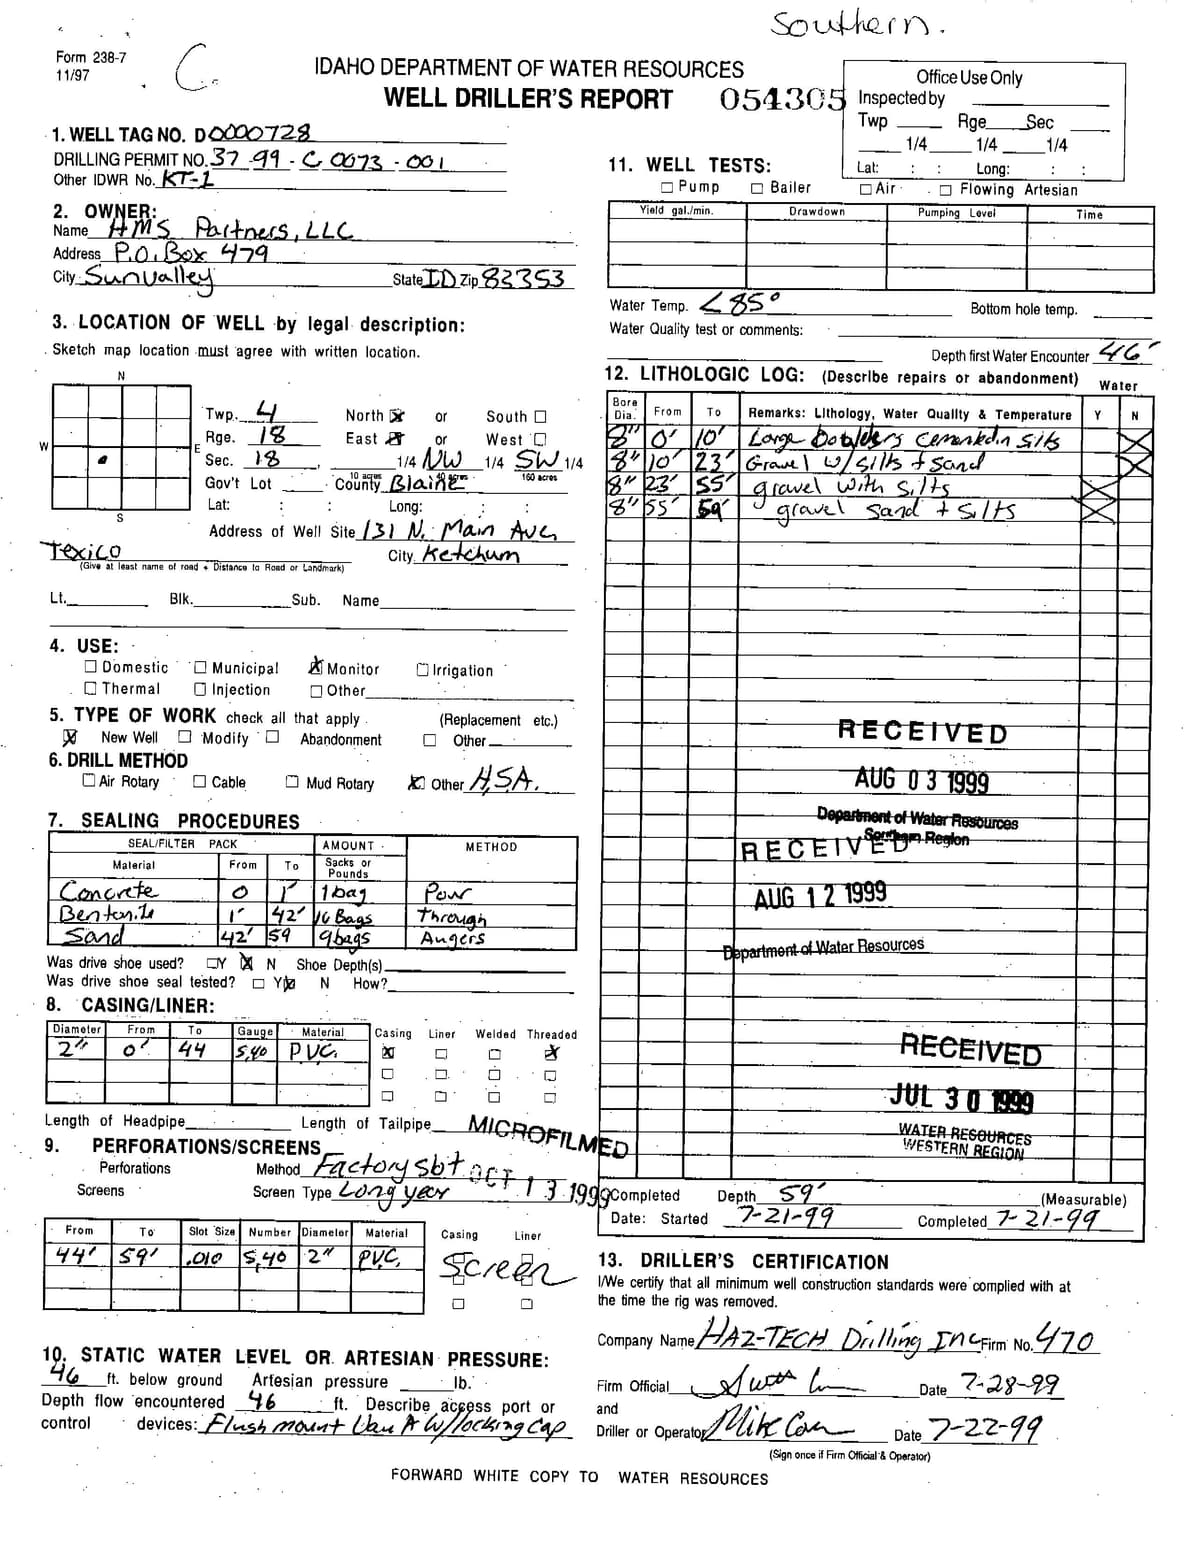 Southern.
Form 238-7
11/97
C.
IDAHO DEPARTMENT OF WATER RESOURCES
WELL DRILLER'S REPORT 054305
Office Use Only
Inspected by
Twp Rge Sec
1/4 1/4 1/4
Lat: : : Long: : :
1. WELL TAG NO. D0000728
DRILLING PERMIT NO. 37-99-C-0073-001
Other IDWR No. KT-1
2. OWNER:
Name HMS Partners, LLC
Address P.O. Box 479
City Sunvalley State ID Zip 83353
3. LOCATION OF WELL by legal description:
Sketch map location must agree with written location.
N
W
E
S
Twp. 4 North or South
Rge. 18 East or West
Sec. 18, 1/4 NW 1/4 SW 1/4
10 acres 40 acres 160 acres
Gov't Lot County Blaine
Lat: : : Long: : :
Address of Well Site 131 N. Main Ave,
Texico City Ketchum
(Give at least name of road + Distance to Road or Landmark)
Lt. Blk. Sub. Name
4. USE:
Domestic Municipal Monitor Irrigation
Thermal Injection Other
5. TYPE OF WORK check all that apply (Replacement etc.)
New Well Modify Abandonment Other
6. DRILL METHOD
Air Rotary Cable Mud Rotary Other H.S.A.
7. SEALING PROCEDURES
SEAL/FILTER PACK AMOUNT METHOD
Material From To Sacks or Pounds
Concrete 0 1' 1 bag Pour
Bentonite 1' 42' 16 Bags through
Sand 42' 59 9 bags Augers
Was drive shoe used? Y N Shoe Depth(s)
Was drive shoe seal tested? Y N How?
8. CASING/LINER:
Diameter From To Gauge Material Casing Liner Welded Threaded
2" 0' 44 S,40 PVC.
Length of Headpipe Length of Tailpipe
MICROFILMED
OCT 13 1999
9. PERFORATIONS/SCREENS
Perforations Method Factory slot
Screens Screen Type Longyear
From To Slot Size Number Diameter Material Casing Liner
44' 59' .010 S,40 2" PVC. Screen
10. STATIC WATER LEVEL OR ARTESIAN PRESSURE:
46 ft. below ground Artesian pressure lb.
Depth flow encountered 46 ft. Describe access port or
control devices: Flush mount Vault W/locking Cap
11. WELL TESTS:
Pump Bailer Air Flowing Artesian
Yield gal./min. Drawdown Pumping Level Time
Water Temp. <85° Bottom hole temp.
Water Quality test or comments:
Depth first Water Encounter 46'
12. LITHOLOGIC LOG: (Describe repairs or abandonment) Water
Bore Dia. From To Remarks: Lithology, Water Quality & Temperature Y N
8" 0' 10' Large Boulders Cemented in Silts
8" 10' 23' Gravel w/ Silts + Sand
8" 23' 55' gravel with silts
8" 55' 59' gravel sand + silts
RECEIVED
AUG 03 1999
Department of Water Resources
Southern Region
RECEIVED
AUG 12 1999
Department of Water Resources
RECEIVED
JUL 30 1999
WATER RESOURCES
WESTERN REGION
Completed Depth 59' (Measurable)
Date: Started 7-21-99 Completed 7-21-99
13. DRILLER'S CERTIFICATION
I/We certify that all minimum well construction standards were complied with at
the time the rig was removed.
Company Name HAZ-TECH Drilling Inc Firm No. 470
Firm Official Date 7-28-99
and
Driller or Operator Mike Date 7-22-99
(Sign once if Firm Official & Operator)
FORWARD WHITE COPY TO WATER RESOURCES